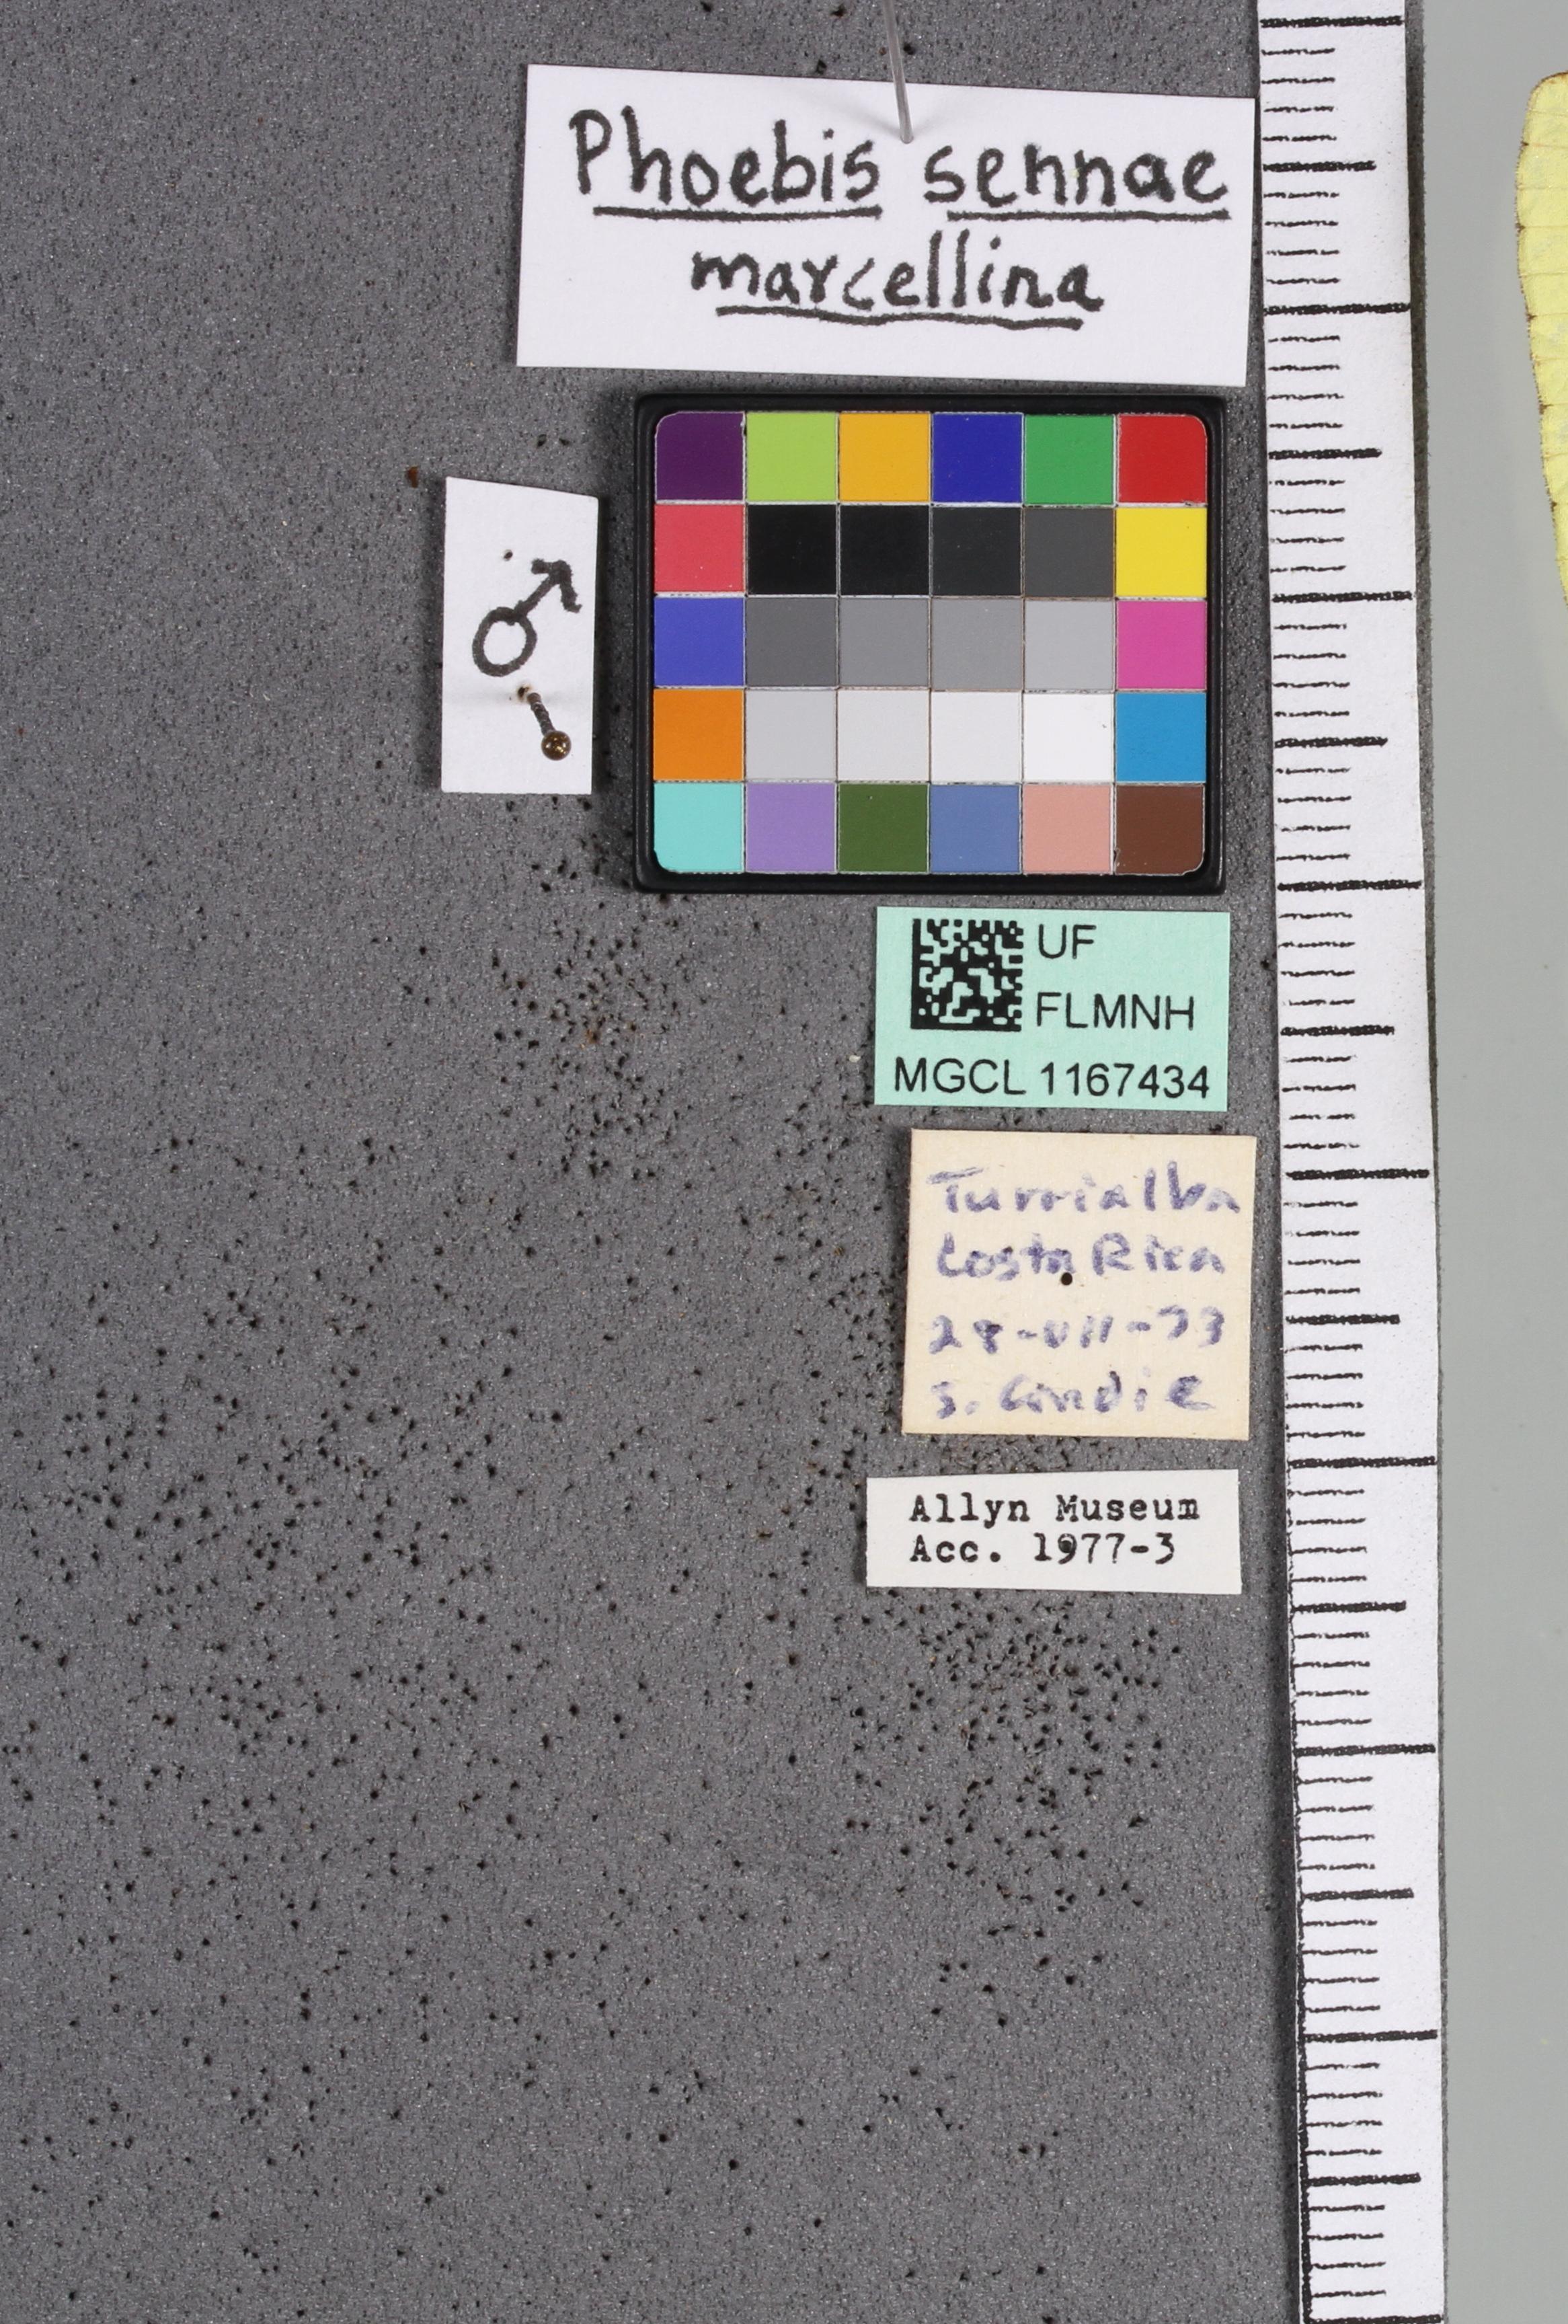 Phoebis sennae
marcellina
♂
UF
FLMNH
MGCL 1167434
Turrialba
Costa Rica
28-VII-73
S. Condie
Allyn Museum
Acc. 1977-3